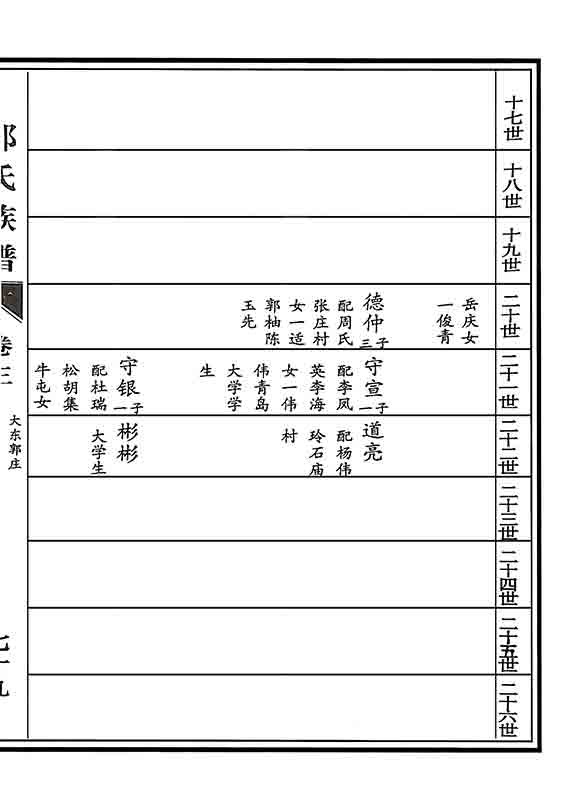 十七世
十八世
十九世
二十世
岳庆女
一俊青
德仲三子
配周氏
张庄村
女一适
郭柚陈
玉先
二十一世
守宣一子
配李凤
英李海
女一伟
伟青岛
大学学
生
守银一子
配杜瑞
松胡集
牛屯女
二十二世
道亮
配杨伟
玲石庙
村
彬彬
大学生
二十三世
二十四世
二十五世
二十六世
氏族谱
卷三
大东郭庄